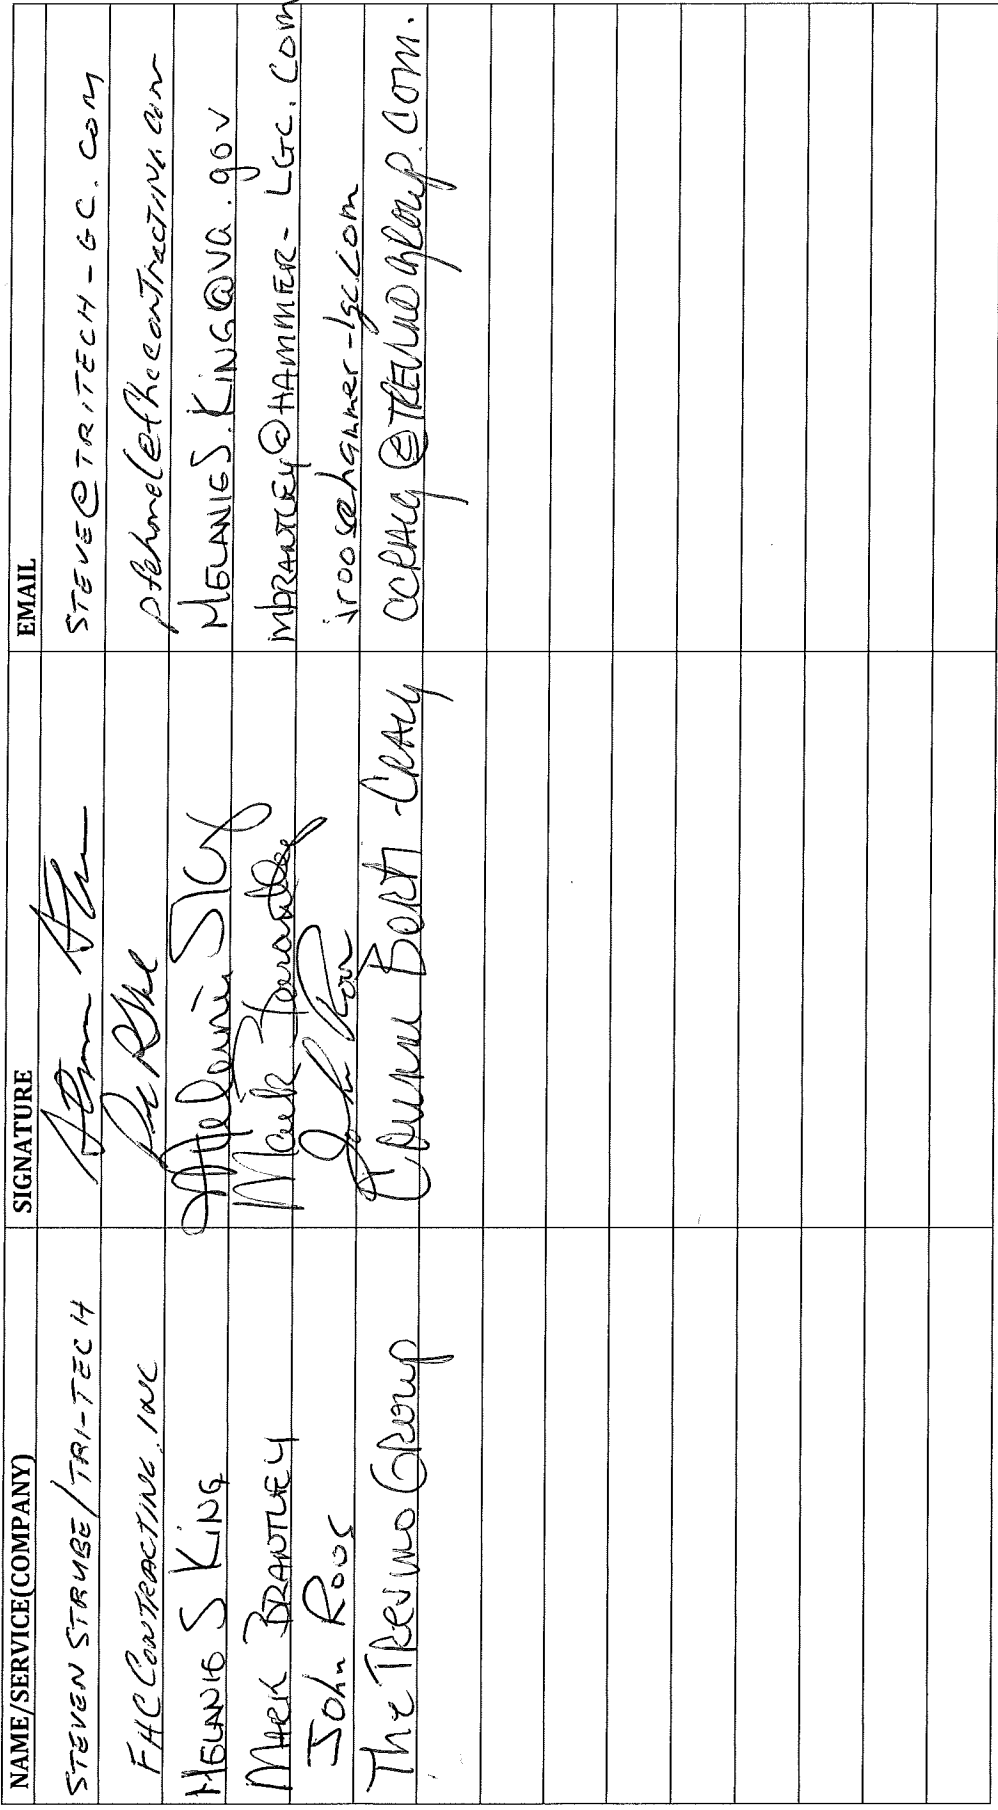 NAME/SERVICE(COMPANY) SIGNATURE EMAIL
STEVEN STRUBE/TRI-TECH STEVE@TRITECH-GC.COM
FHC CONTRACTING, INC
MELANIE S KING Melanie S. MELANIE S.KING@VA.gov
MARK BRANTLEY Mark Brantley mBRANTLEY@HAMMER-LGC.COM
John Roos John jroos@hammer-lgc.com
The TREVINO GROUP CRAIG @TREVINOGROUP.COM.